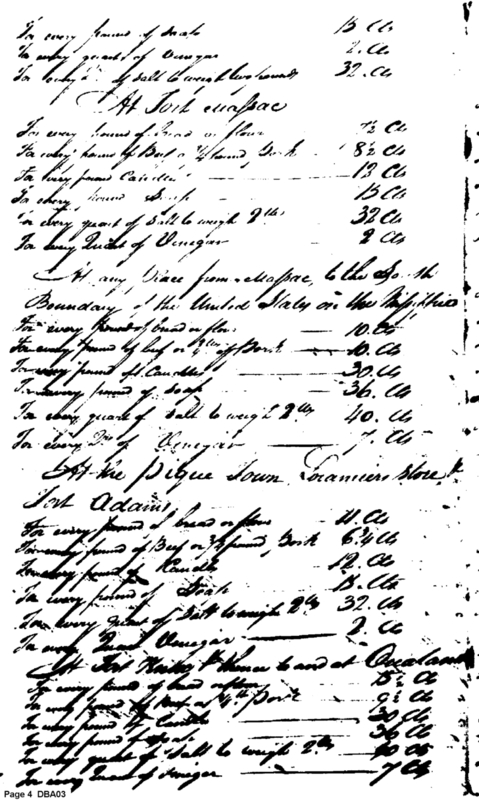 For every pound of Soap 13 Cts
For every quart of Vinegar 2. Cts
For every of Salt to weigh two pounds 32. Cts
At Fort Massac
For every pound of bread or flour 7½ Cts
For every pound of Beef or ¾ pound Pork 8½ Cts
For every pound Candles 13 Cts
For every pound Soap 13 Cts
For every quart of Salt to weigh 2 lbs 32 Cts
For every Quart of Vinegar 2 Cts
At any place from Massac, to the South
Boundary of the United States on the Mississippi
For every pound of bread or flour 10. Cts
For every pound of beef or of Pork 10. Cts
For every pound of Candles 30. Cts
For every pound of Soap 36. Cts
For every quart of Salt to weigh 2 lbs 40. Cts
For every of Vinegar 7. Cts
At the Pique Town Loramiers Store &
Fort Adams
For every pound of bread or flour 11 Cts
For every pound of Beef or ¾ pound, Pork 6¾ Cts
For every pound of Candle 12. Cts
For every pound of Soap Cts
For every quart of Salt to weigh 2 lbs 32. Cts
For every Quart Vinegar 2. Cts
At Fort & thence to and at
For every pound of bread or flour 15½ Cts
For every pound of Beef or Pork 9½ Cts
For every pound of Candles 30 Cts
For every pound of Soap 36 Cts
For every quart of Salt to weigh 2 lbs 40 Cts
For every Quart of Vinegar 7 Cts
Page 4 DBA03